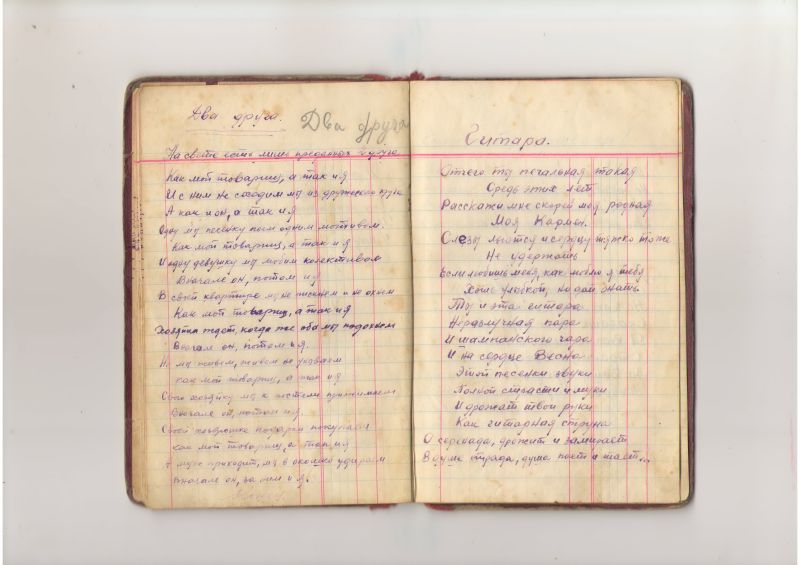 Два друга.
Два друга
На свете есть лишь преданных 2 друга
Как мой товарищ, а так и я
И с ним не сходим мы из дружеского круга
А как и он, а так и я
Одну мы песенку поем одним мотивом.
Как мой товарищ, а так и я
И одну девушку мы любим колективом
Вначале он, потом и я
В своей квартире мы не и не охнем
Как мой товарищ, а так и я
Хозяин ждет, когда же оба мы подохнем
Вначале он, потом и я.
Но мы живем, живем не унываем
как мой товарищ, а так и я
Свою хозяйку мы к постели прижимаем
Вначале он, потом и я.
Своей хозяюшке подарки покупаем
как мой товарищ, а так и я
А муж приходит, мы в окошко удираем
Вначале он, за ним и я.
Гитара.
Отчего ты печальная такая
Средь этих лет
Расскажи мне скорей моя родная
Моя Кармен.
Слезы льются и сердцу тяжко тоже
Не удержать
Если любишь меня, как можно я тебя
Хоть улыбкой, но дай знать.
Ты и эта гитара
Неразлучная пара
И шампанского чара
И на сердце Весна
Этой песенки звуки
Полной страсти и муки
И дрожат твои руки
Как гитарная струна
О серенада, дрожит и замирает
В душе отрада, душа поет и тает...